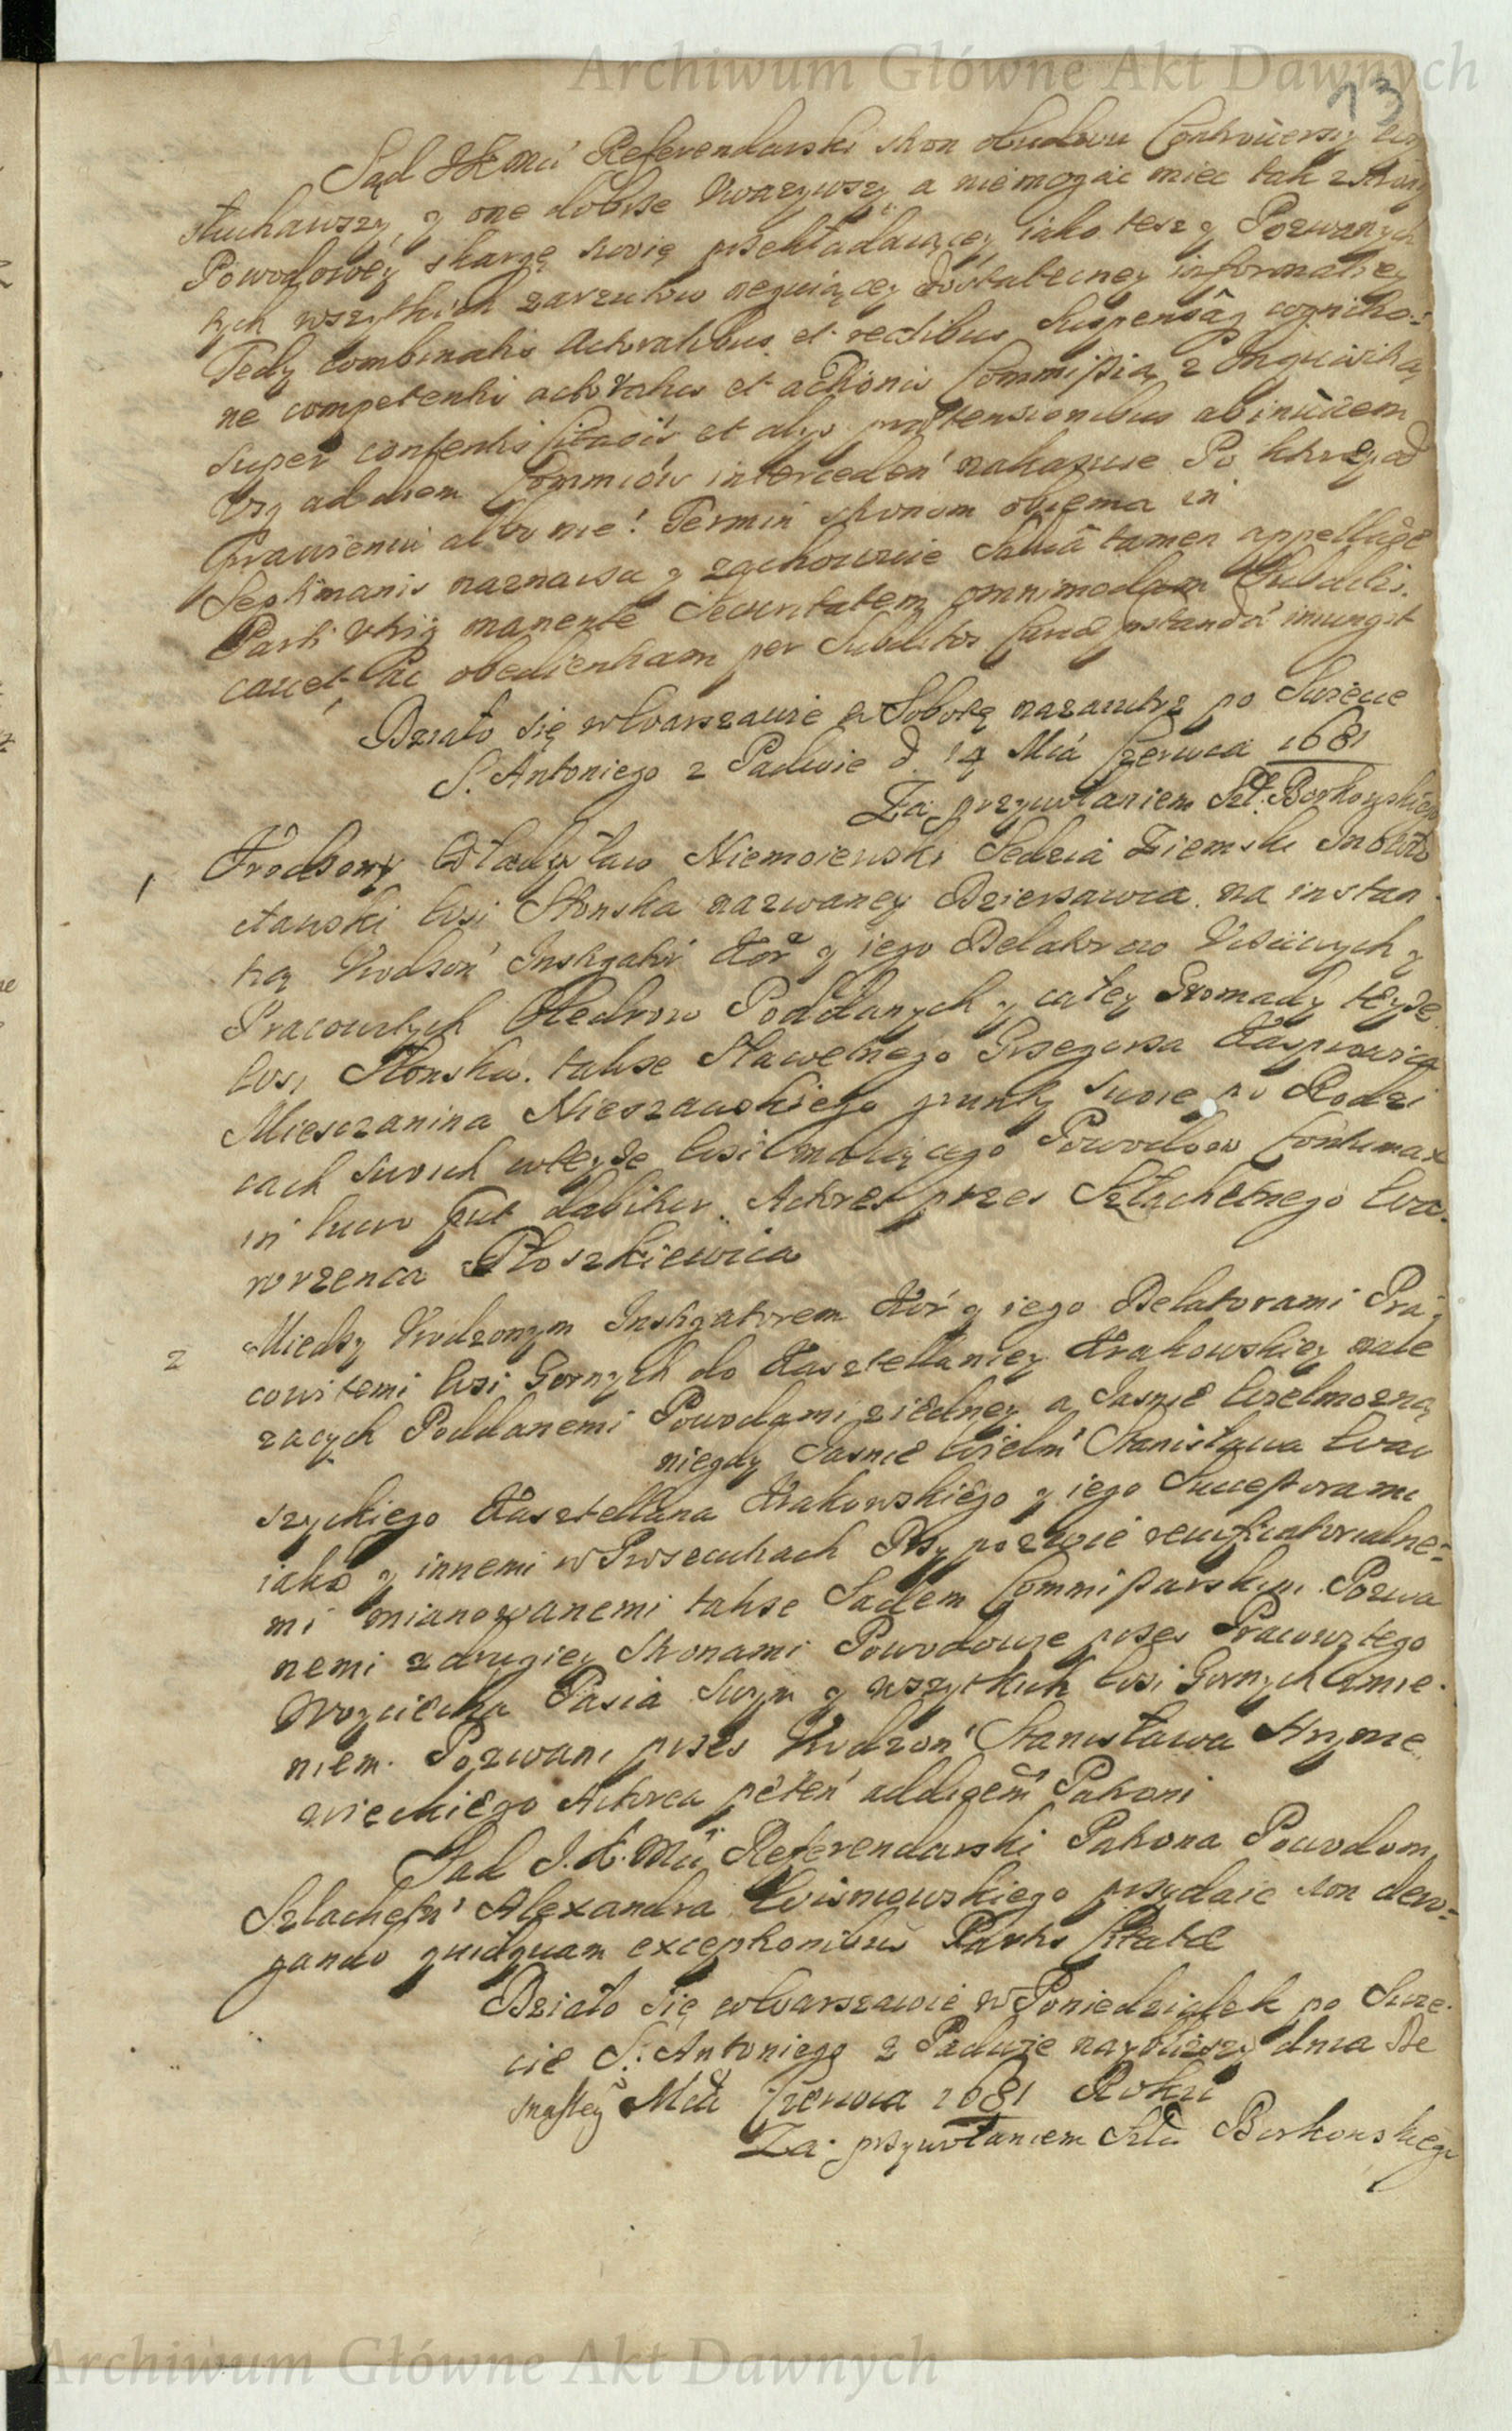 Archiwum Główne Akt Dawnych
13
Sąd JKMci Referendarski stron obudwu Controuersiy
słuchawszy, y one dobrze Vwazywszy a niemogąc miec tak z strony
Powodowey skargę swoię przekładaiącey iako tesz y Pozwanych
tych wszytkich zarzutow neguiącey dostateczney informatiey
Tedy combinatis Actoratibus et reatibus Suspensâq cognitio:
ne competentis actoratus et actionis Commissią z Inquisitią
super contentis Citaois et alys prætensionibus abinuicem
Vsq ad diem Commiois interceden nakazuie Po ktorey od
prawieniu albo nie: Termin stronom obiema in
Septimanis naznacza y zachowuie Saluâ tamen appellaõe
Parti Vtriq manente Securitatem omnimodam Subditis
cauet, Ac obedientiam per Subditos pstandã iniungit
Działo się w Warszawie w Sobotę nazaiutrz po Swięcie
S. Antoniego z Padwie d. 14 Mca Czerwca 1681
Za przywołaniem Szl: Borkowskie
1 Vrodzony Władysław Niemoiewski Sedzia Ziemski Inowło
cławski Wsi Słonska nazwaney Dziersawca na instan
tią Vrodzon Instigatora Kor y iego Delatorow Vsciwych y
Pracowitych Olędrow Poddanych y całey Gromady teyze
Wsi Słonska, takze Sławetnego Grzegorza Kasprowica
Miesczanina Nieszawskiego grunty swoie po Rodzi
cach swoich w teyze Wsi maiącego Powodow Contumax
in lucro put dabitur Actores przes Szlachetnego Waw
wrzenca Płoszkiewica
2 Miedzy Vrodzonym Instigatorem Kor y iego Delatorami Pra
cowitemi Wsi Gornych do Kasztellaniey Krakowskiey nale
zacych Poddanemi Powodami z iedney a Jasnie Wielmozną
niegdy Jasnie Wielm Stanisława War
szyckiego Kasztellana Krakowskiego y iego Successorami
iako y innemi w Processach Przy pozwie reuificatorialne:
mi mianowanemi takze Sadem Commissarskim Pozwa
nemi z drugiey Stronami Powodowie przes Pracowitego
Woyciecha Pasia Swym y wszytkich Wsi Gornych imie
niem. Pozwani przes Vrodzon Stanisława Krzyme
wieckiego Actorea peten addicem Patroni
Sad J.K.Mci Referendarski Patrona Powodom
Szlachetn Alexandra Wisniowskiego przydaie non dero:
gando quidquam exceptionibus Partis Citatæ
Działo się w Warszawie w Poniedziałek po Swie
cie S. Antoniego z Padwie nayblizszy dnia Sze
snastey Mca Czerwca 1681 Roku
Za przywołaniem Szla Borkowskiego
Archiwum Główne Akt Dawnych